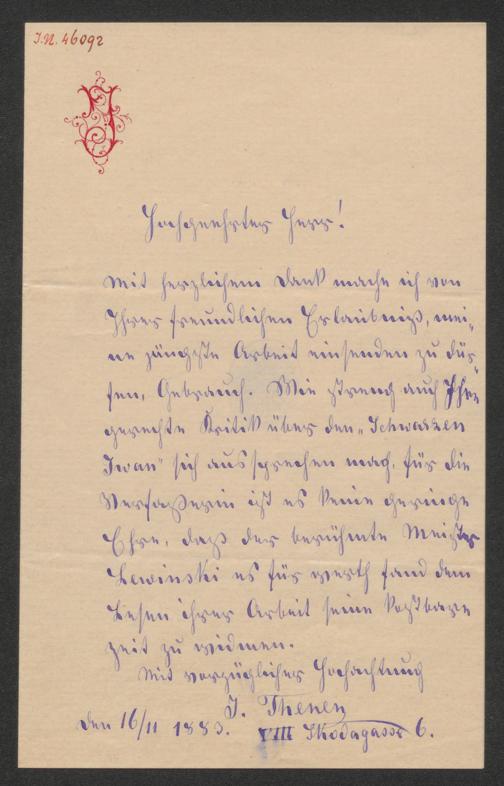 I.N. 46092
Hochgeehrter Herr!
Mit herzlichem Dank mache ich von
Ihrer freundlichen Erlaubniß, mei-
ne jüngste Arbeit einsenden zu dür-
fen, Gebrauch. Wie streng auch Ihre
gerechte Kritik über den „Schwarzen
Iwan" sich aussprechen mag, für die
Verfaßerin ist es keine geringe
Ehre, daß der berühmte Meister
Lewinski es für werth fand dem
Lesen ihrer Arbeit seine kostbare
Zeit zu widmen.
Mit vorzüglicher Hochachtung
J. Thenen
den 16/11 1883. VIII Skodagasse 6.